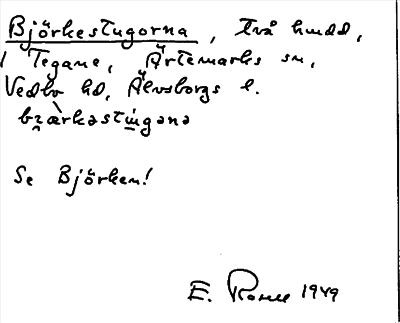 Björkestugorna, två hmdd,
i Tegane, Ärtemarks sn,
Vedbo hd, Älvsborgs l.
Se Björken!
E. 1949